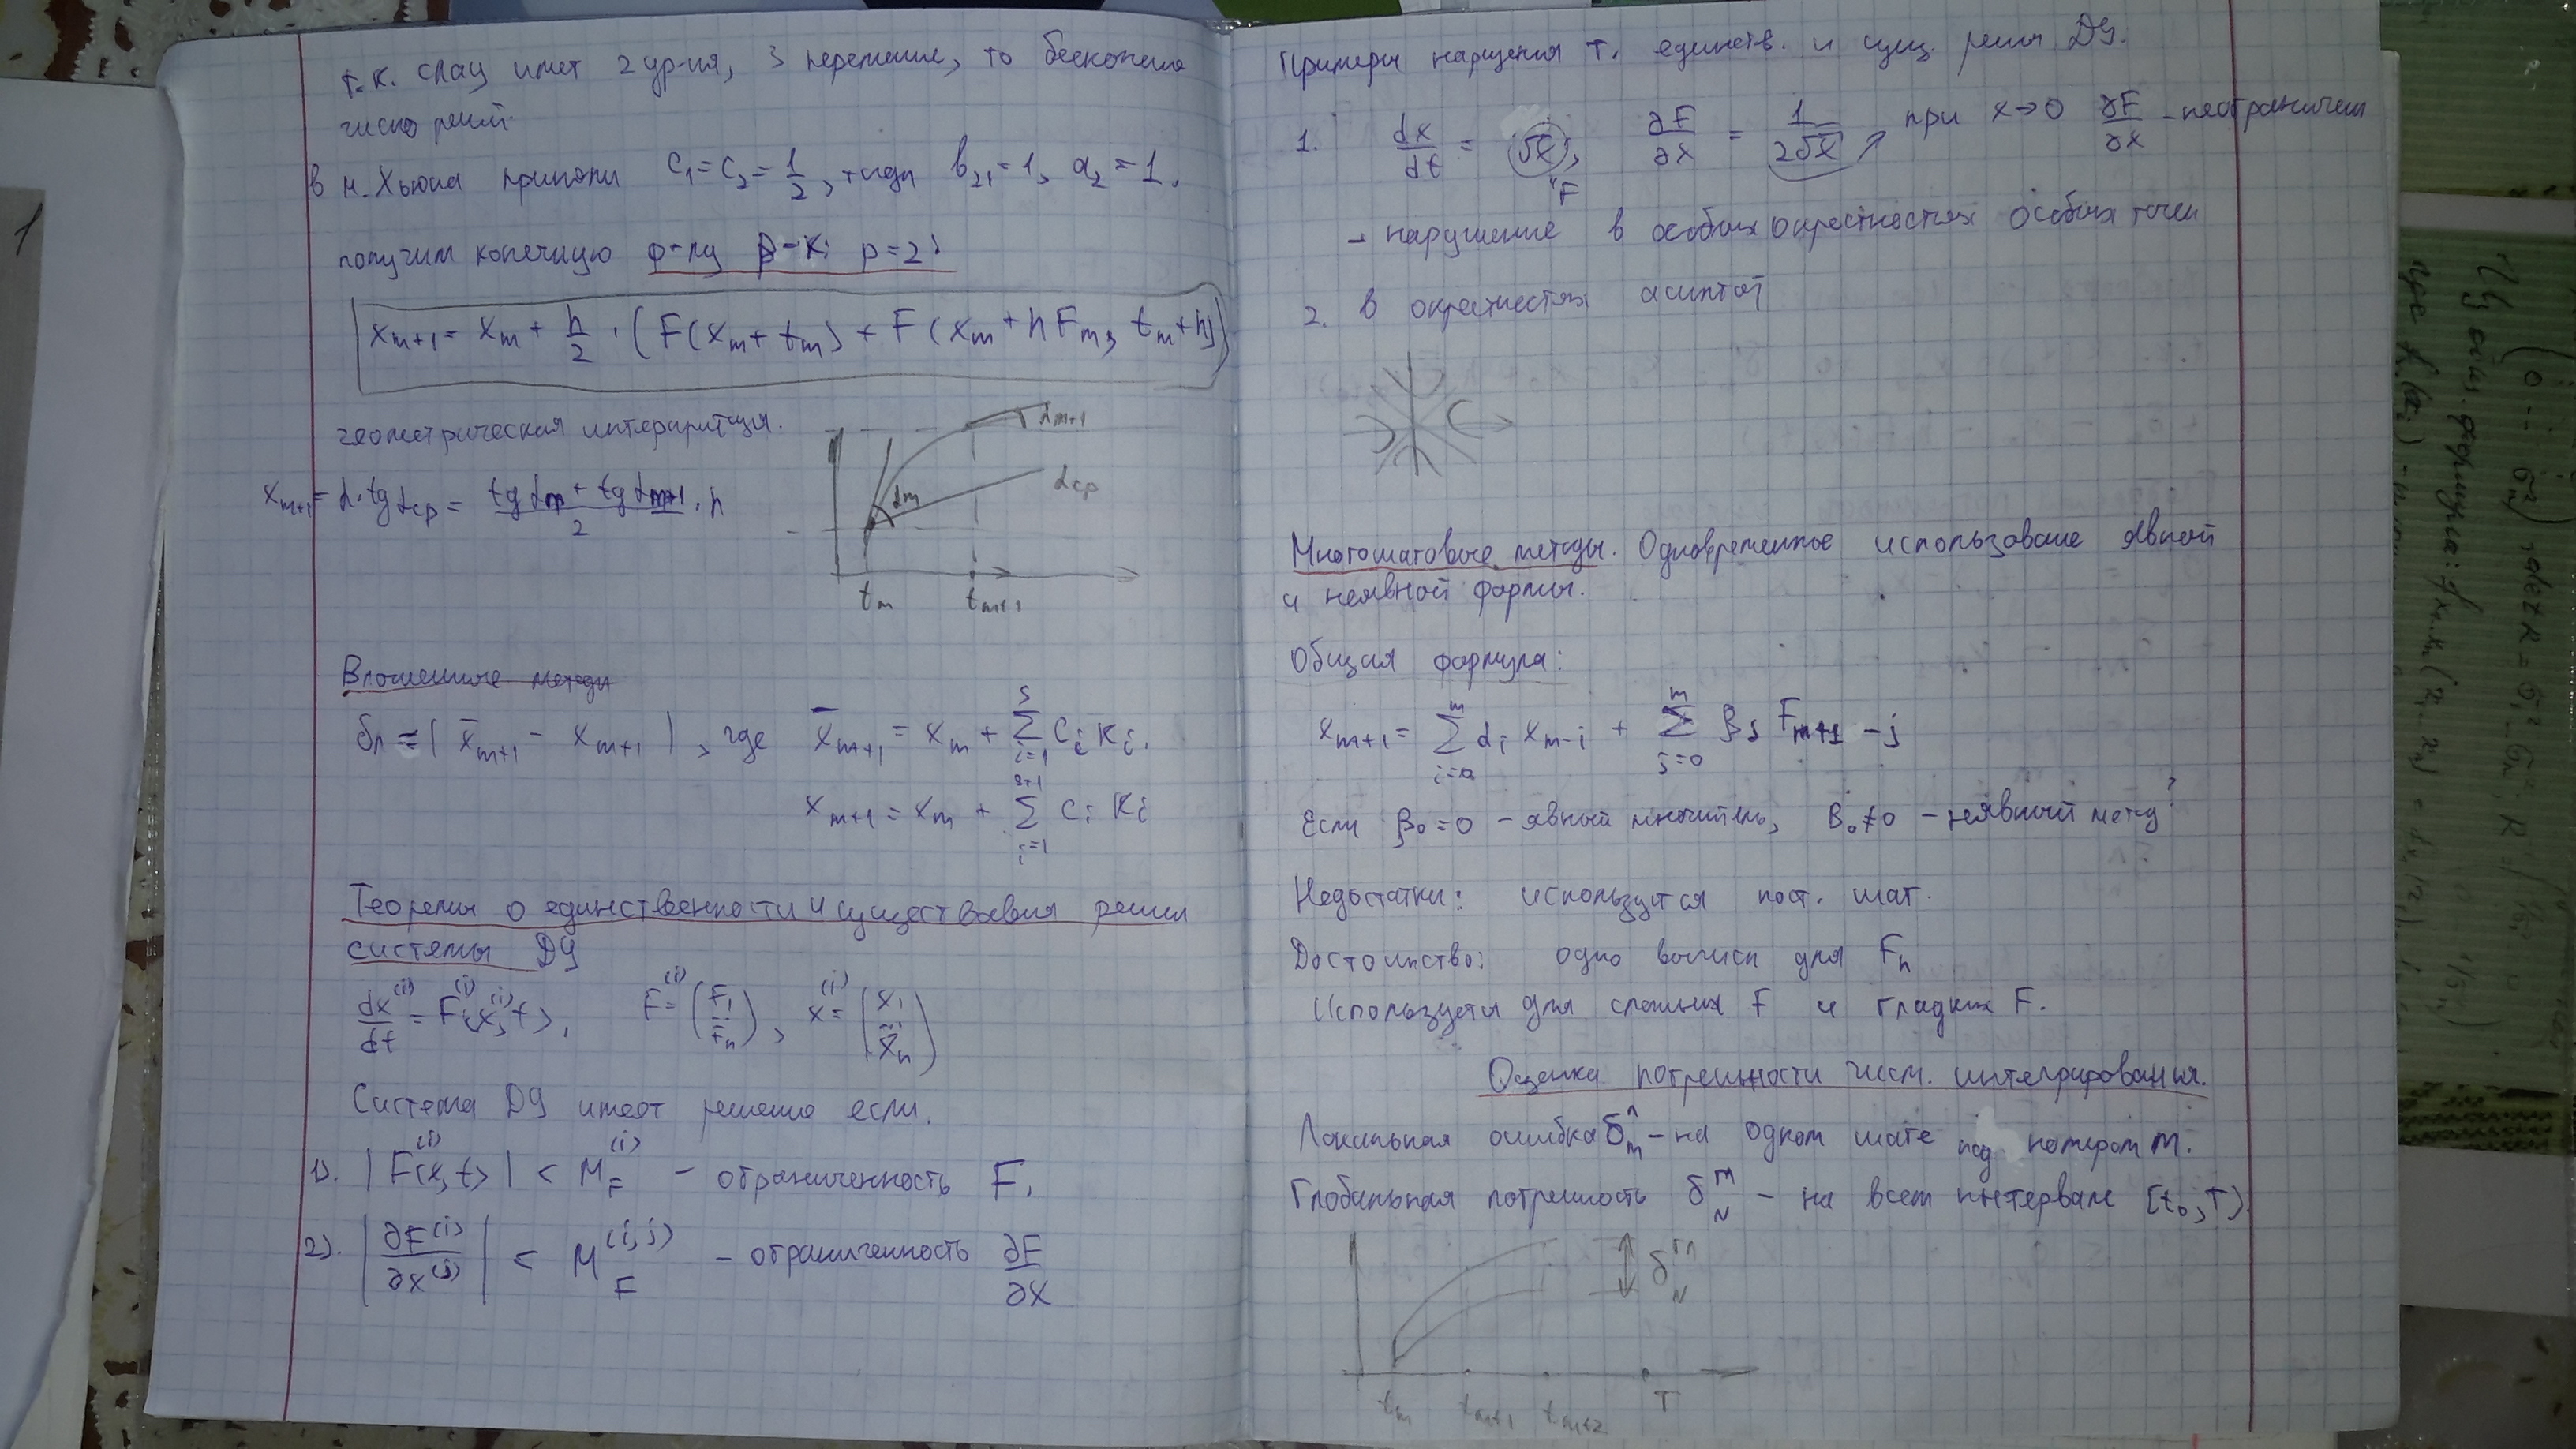 т.к. слау имеет 2 ур-ия, 3 перемение, то бесконечно
число реш.
в м. Хьюна приняли C₁=C₂=1/2, тогда b₂₁=1, a₂=1.
получим конечную ф-лу Р-К: p=2:
x_{m+1} = x_m + h/2 · (F(x_m + t_m) + F(x_m + hF_m, t_m+h))
геометрическая интерпритация.
x_{m+1} = α·tg α_{ср} = (tg α_m + tg α_{m+1})/2 · h
α_{m+1}
α_m
α_{ср}
t_m t_{m+1}
Вложенные методы
δ_л = | x̄_{m+1} - x_{m+1} |, где x̄_{m+1} = x_m + Σ_{i=1}^{s} C_i K_i.
x_{m+1} = x_m + Σ_{i=1}^{s+1} C_i K_i
Теорема о единственности и существования решен
системы ДУ
dx^{(i)}/dt = F^{(i)}(x^{(i)}, t), F^{(i)} = (F_1 ... F_n), x^{(i)} = (x_1 ... x_n)
Система ДУ имеет решение если.
1). |F^{(i)}(x,t)| < M_F^{(i)} - ограниченность F.
2). |∂F^{(i)}/∂x^{(j)}| < M_F^{(i,j)} - ограниченность ∂F/∂x
Примеры нарщения т. единств. и сущ. решя ДУ.
1. dx/dt = √x, "F ∂F/∂x = 1/(2√x) при x→0 ∂F/∂x - неограничен
- нарушение в особых окрестностях особых точек
2. в окрестностях асимптот
Многошаговые методы. Одновременное использование явной
и неявной формы.
Общая формула:
x_{m+1} = Σ_{i=0}^{m} α_i x_{m-i} + Σ_{j=0}^{m} β_j F_{m+1-j}
Если β₀=0 - явный, β₀≠0 - неявный метод?
Недостатки: используется пост. шаг.
Достоинство: одно вычисл для F_n
Используется для сложных F и гладких F.
Оценка погрешности числ. интегрирования.
Локальная ошибка δ_m^л - на одном шаге под номером m.
Глобальная погрешность δ_N^{гл} - на всем интервале [t₀, T).
δ_N^{гл}
t_m t_{m+1} t_{m+2} T